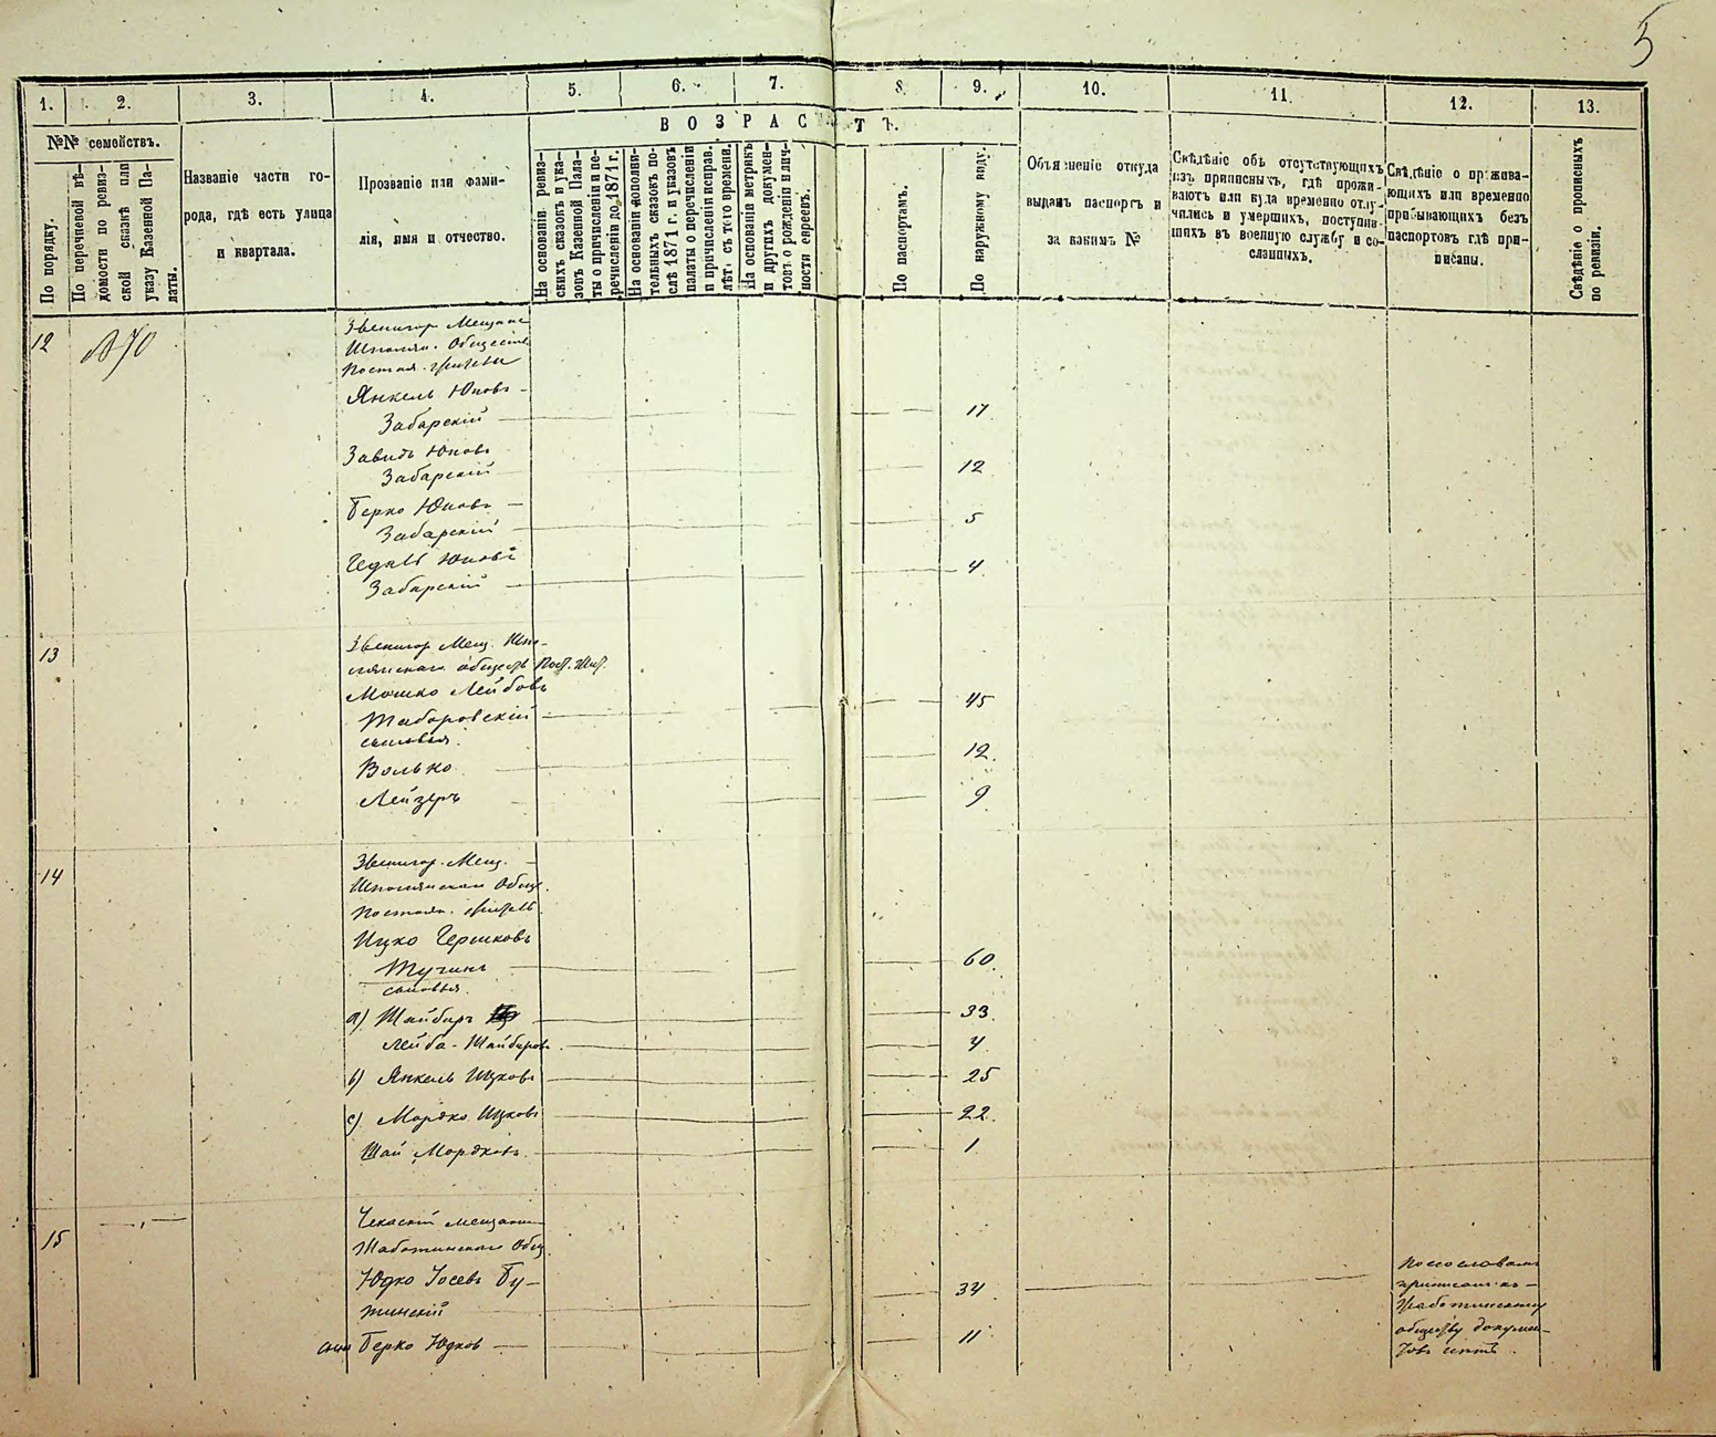 5
1. 2. 3. 4. 5. 6. 7. 8. 9. 10. 11. 12. 13.
№№ семействъ.
По порядку.
По перечневой вѣ-
домости по ревиз-
ской сказкѣ или
указу Казенной Па-
латы.
Названіе части го-
рода, гдѣ есть улица
и квартала.
Прозваніе или фами-
лія, имя и отчество.
ВОЗРАСТЪ.
На основаніи ревиз-
скихъ сказокъ и ука-
зовъ Казенной Пала-
ты о причисленіи и пе-
речисленіи до 1871 г.
На основаніи дополни-
тельныхъ сказокъ по-
слѣ 1871 г. и указовъ
палаты о перечисленіи
и причисленіи исправ.
лѣтъ съ того времени.
На основаніи метрикъ
и другихъ докумен-
товъ о рожденіи и лич-
ности евреевъ.
По паспортамъ.
По наружному виду.
Объясненіе откуда
выданъ паспортъ и
за какимъ №
Свѣдѣніе объ отсутствующихъ
изъ приписныхъ, гдѣ прожи-
ваютъ или куда временно отлу-
чились и умершихъ, поступив-
шихъ въ военную службу и со-
сланныхъ.
Свѣдѣніе о прожива-
ющихъ или временно
прибывающихъ безъ
паспортовъ гдѣ при-
писаны.
Свѣдѣніе о прописныхъ
по ревизіи.
12 №70 Звенигор Мещане
Шполян. Общества
Постоя. жители
Янкель Юковъ
Забарскій 17
Завидъ Юковъ
Забарскій 12
Берко Юковъ
Забарскій 5
Гедаль Юковъ
Забарскій 4
13 Звенигор Мещ. Шпо-
лянскаго обществ Пост. Жит.
Мошко Лейбовъ 45
Таборовскій
сыновья
Волько 12
Лейзеръ 9
14 Звенигор. Мещ.
Шполянскаго Общес.
Постоян. житель
Ицко Гершковъ
Тучинъ 60
сыновья
а) Шайберъ 33
Лейба-Шайберовъ 4
b) Янкель Ицковъ 25
с) Мордко Ицковъ 22
Шай Мордковъ 1
15 Черкаскій мещанинъ
Жаботинскаго Общ.
Юдко Іосевъ Бу-
жинскій 34
сынъ Берко Юдков 11
По его словамъ
приписанъ къ
Жаботинскому
обществу докумен-
товъ нетъ.